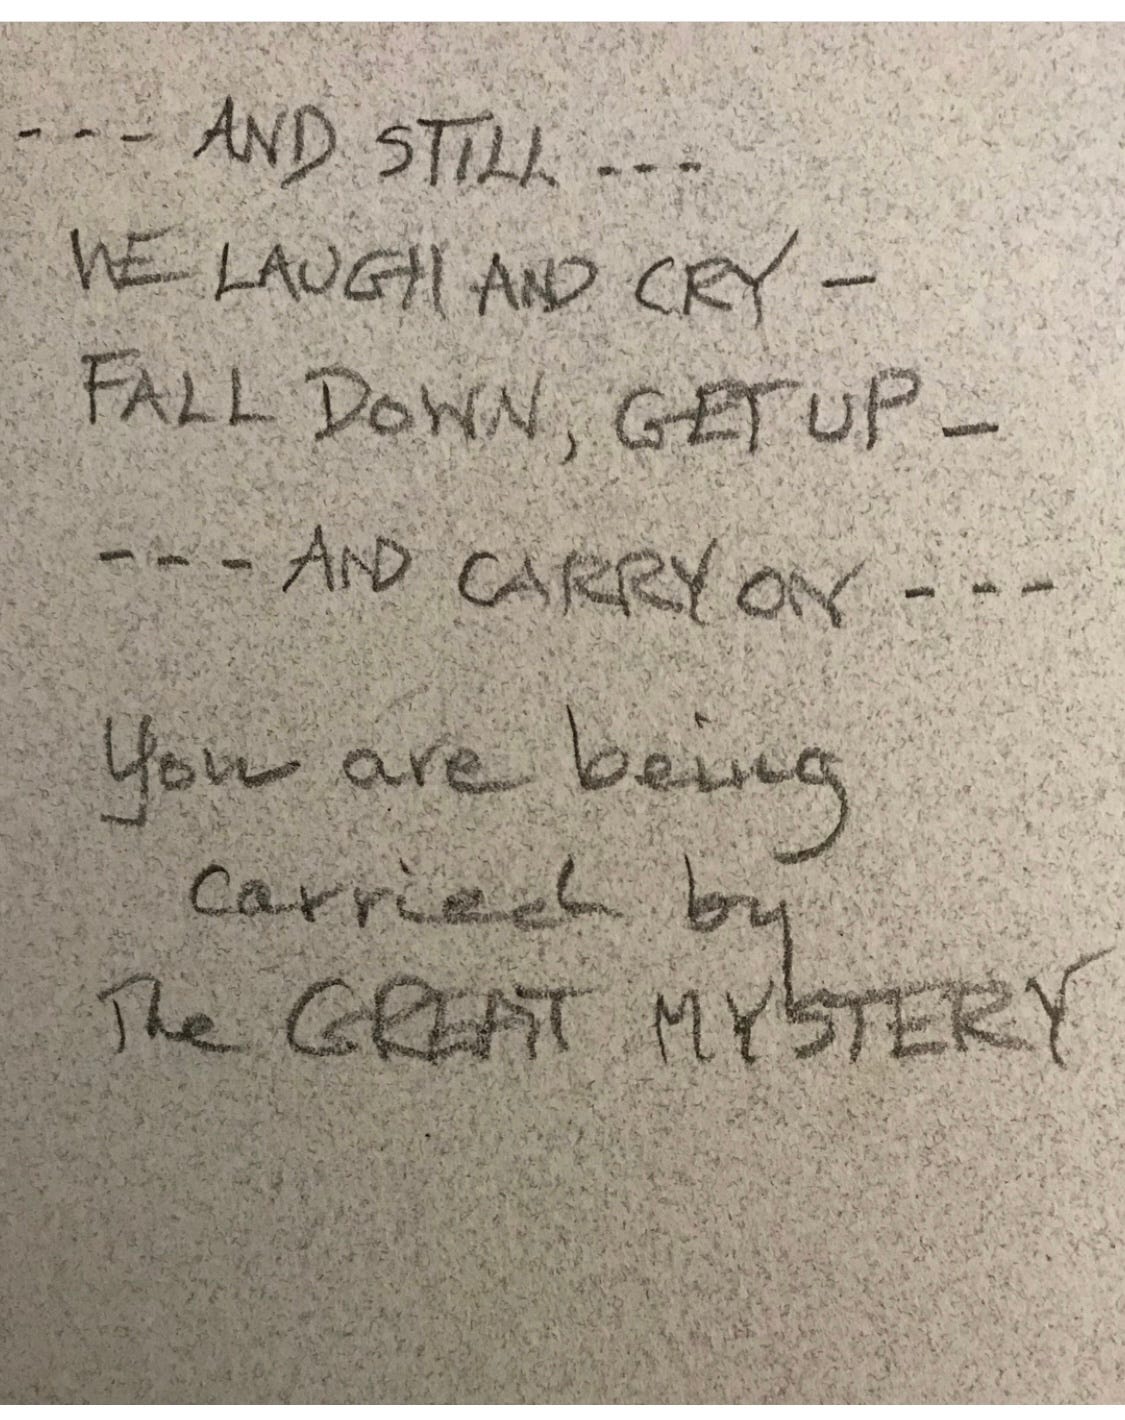 --- AND STILL ---
WE LAUGH AND CRY –
FALL DOWN, GET UP –
--- AND CARRY ON ---
You are being
carried by
The GREAT MYSTERY